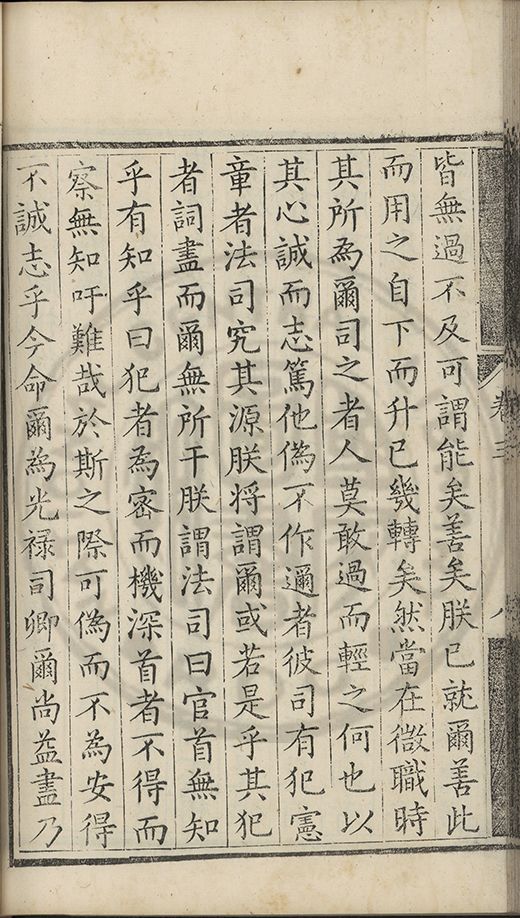 皆無過不及可謂能矣善矣朕已就爾善此
而用之自下而升已幾轉矣然當在微職時
其所為爾司之者人莫敢過而輕之何也以
其心誠而志篤他偽不作邇者彼司有犯憲
章者法司究其源朕将謂爾或若是乎其犯
者詞盡而爾無所干朕謂法司曰官首無知
乎有知乎曰犯者為密而機深首者不得而
察無知吁難哉於斯之際可偽而不為安得
不誠志乎今命爾為光禄司卿爾尚益盡乃
卷三
八